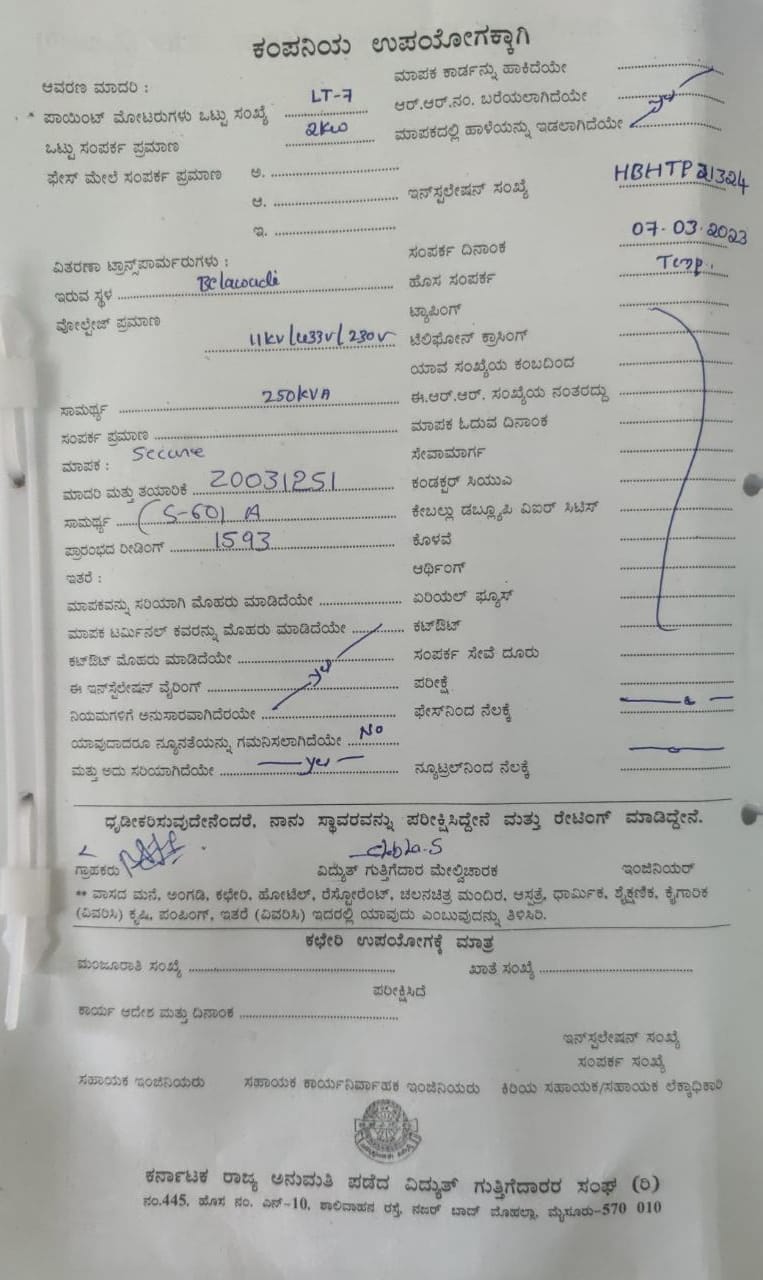 ಕಂಪನಿಯ ಉಪಯೋಗಕ್ಕಾಗಿ
ಆವರಣ ಮಾದರಿ : LT-7
* ಪಾಯಿಂಟ್ ಮೋಟರುಗಳು ಒಟ್ಟು ಸಂಖ್ಯೆ 2kw
ಒಟ್ಟು ಸಂಪರ್ಕ ಪ್ರಮಾಣ
ಫೇಸ್ ಮೇಲೆ ಸಂಪರ್ಕ ಪ್ರಮಾಣ ಅ.
ಆ.
ಇ.
ವಿತರಣಾ ಟ್ರಾನ್ಸ್‌ಪಾರ್ಮರುಗಳು :
ಇರುವ ಸ್ಥಳ
ವೋಲ್ಟೇಜ್ ಪ್ರಮಾಣ
11kv/433v/230v
ಸಾಮರ್ಥ್ಯ 250kVA
ಸಂಪರ್ಕ ಪ್ರಮಾಣ
ಮಾಪಕ : Secure
ಮಾದರಿ ಮತ್ತು ತಯಾರಿಕೆ 20031251
ಸಾಮರ್ಥ್ಯ (5-60) A
ಪ್ರಾರಂಭದ ರೀಡಿಂಗ್ 1593
ಇತರೆ :
ಮಾಪಕವನ್ನು ಸರಿಯಾಗಿ ಮೊಹರು ಮಾಡಿದೆಯೇ
ಮಾಪಕ ಟರ್ಮಿನಲ್ ಕವರನ್ನು ಮೊಹರು ಮಾಡಿದೆಯೇ
ಕಟ್‌ಔಟ್ ಮೊಹರು ಮಾಡಿದೆಯೇ
ಈ ಇನ್‌ಸ್ಟೆಲೇಷನ್ ವೈರಿಂಗ್ yes
ನಿಯಮಗಳಿಗೆ ಅನುಸಾರವಾಗಿದೆರಯೇ
ಯಾವುದಾದರೂ ನ್ಯೂನತೆಯನ್ನು ಗಮನಿಸಲಾಗಿದೆಯೇ No
ಮತ್ತು ಅದು ಸರಿಯಾಗಿದೆಯೇ yes
ಮಾಪಕ ಕಾರ್ಡನ್ನು ಹಾಕಿದೆಯೇ
ಆರ್.ಆರ್.ನಂ. ಬರೆಯಲಾಗಿದೆಯೇ yes
ಮಾಪಕದಲ್ಲಿ ಹಾಳೆಯನ್ನು ಇಡಲಾಗಿದೆಯೇ
ಇನ್‌ಸ್ಪಲೇಷನ್ ಸಂಖ್ಯೆ HBHTP21324
ಸಂಪರ್ಕ ದಿನಾಂಕ 07-03-2023
ಹೊಸ ಸಂಪರ್ಕ Temp.
ಟ್ಯಾಪಿಂಗ್
ಟೆಲಿಫೋನ್ ಕ್ರಾಸಿಂಗ್
ಯಾವ ಸಂಖ್ಯೆಯ ಕಂಬದಿಂದ
ಈ.ಆರ್.ಆರ್. ಸಂಖ್ಯೆಯ ನಂತರದ್ದು
ಮಾಪಕ ಓದುವ ದಿನಾಂಕ
ಸೇವಾಮಾರ್ಗ
ಕಂಡಕ್ಟರ್ ಸಿಯುವಿ
ಕೇಬಲ್ಲು ಡಬ್ಲ್ಯೂಪಿ ವಿಐರ್ ಸಿಟಿಸ್
ಕೊಳವೆ
ಆರ್ಥಿಂಗ್
ಏರಿಯಲ್ ಫ್ಯೂಸ್
ಕಟ್‌ಔಟ್
ಸಂಪರ್ಕ ಸೇವೆ ದೂರು
ಪರೀಕ್ಷೆ
ಫೇಸ್‌ನಿಂದ ನೆಲಕ್ಕೆ
ನ್ಯೂಟ್ರಲ್‌ನಿಂದ ನೆಲಕ್ಕೆ
ಧೃಡೀಕರಿಸುವುದೇನೆಂದರೆ, ನಾನು ಸ್ಥಾವರವನ್ನು ಪರೀಕ್ಷಿಸಿದ್ದೇನೆ ಮತ್ತು ರೇಟಿಂಗ್ ಮಾಡಿದ್ದೇನೆ.
ಗ್ರಾಹಕರು ವಿದ್ಯುತ್ ಗುತ್ತಿಗೆದಾರ ಮೇಲ್ವಿಚಾರಕ ಇಂಜಿನಿಯರ್
** ವಾಸದ ಮನೆ, ಅಂಗಡಿ, ಕಛೇರಿ, ಹೋಟೆಲ್, ರೆಸ್ಟೋರೆಂಟ್, ಚಲನಚಿತ್ರ ಮಂದಿರ, ಆಸ್ಪತ್ರೆ, ಧಾರ್ಮಿಕ, ಶೈಕ್ಷಣಿಕ, ಕೈಗಾರಿಕ
(ವಿವರಿಸಿ) ಕೃಷಿ, ಪಂಪಿಂಗ್, ಇತರೆ (ವಿವರಿಸಿ) ಇದರಲ್ಲಿ ಯಾವುದು ಎಂಬುವುದನ್ನು ತಿಳಿಸಿರಿ.
ಕಛೇರಿ ಉಪಯೋಗಕ್ಕೆ ಮಾತ್ರ
ಮಂಜೂರಾತಿ ಸಂಖ್ಯೆ ಖಾತೆ ಸಂಖ್ಯೆ
ಪರೀಕ್ಷಿಸಿದೆ
ಕಾರ್ಯ ಆದೇಶ ಮತ್ತು ದಿನಾಂಕ
ಇನ್‌ಸ್ಪಲೇಷನ್ ಸಂಖ್ಯೆ
ಸಂಪರ್ಕ ಸಂಖ್ಯೆ
ಸಹಾಯಕ ಇಂಜಿನಿಯರು ಸಹಾಯಕ ಕಾರ್ಯನಿರ್ವಾಹಕ ಇಂಜಿನಿಯರು ಕಿರಿಯ ಸಹಾಯಕ/ಸಹಾಯಕ ಲೆಕ್ಕಾಧಿಕಾರಿ
ಕರ್ನಾಟಕ ರಾಜ್ಯ ಅನುಮತಿ ಪಡೆದ ವಿದ್ಯುತ್ ಗುತ್ತಿಗೆದಾರರ ಸಂಘ (ರಿ)
ನಂ.445, ಹೊಸ ನಂ. ಎನ್-10, ಶಾಲಿವಾಹನ ರಸ್ತೆ, ನಜರ್ ಬಾದ್ ಮೊಹಲ್ಲಾ, ಮೈಸೂರು-570 010